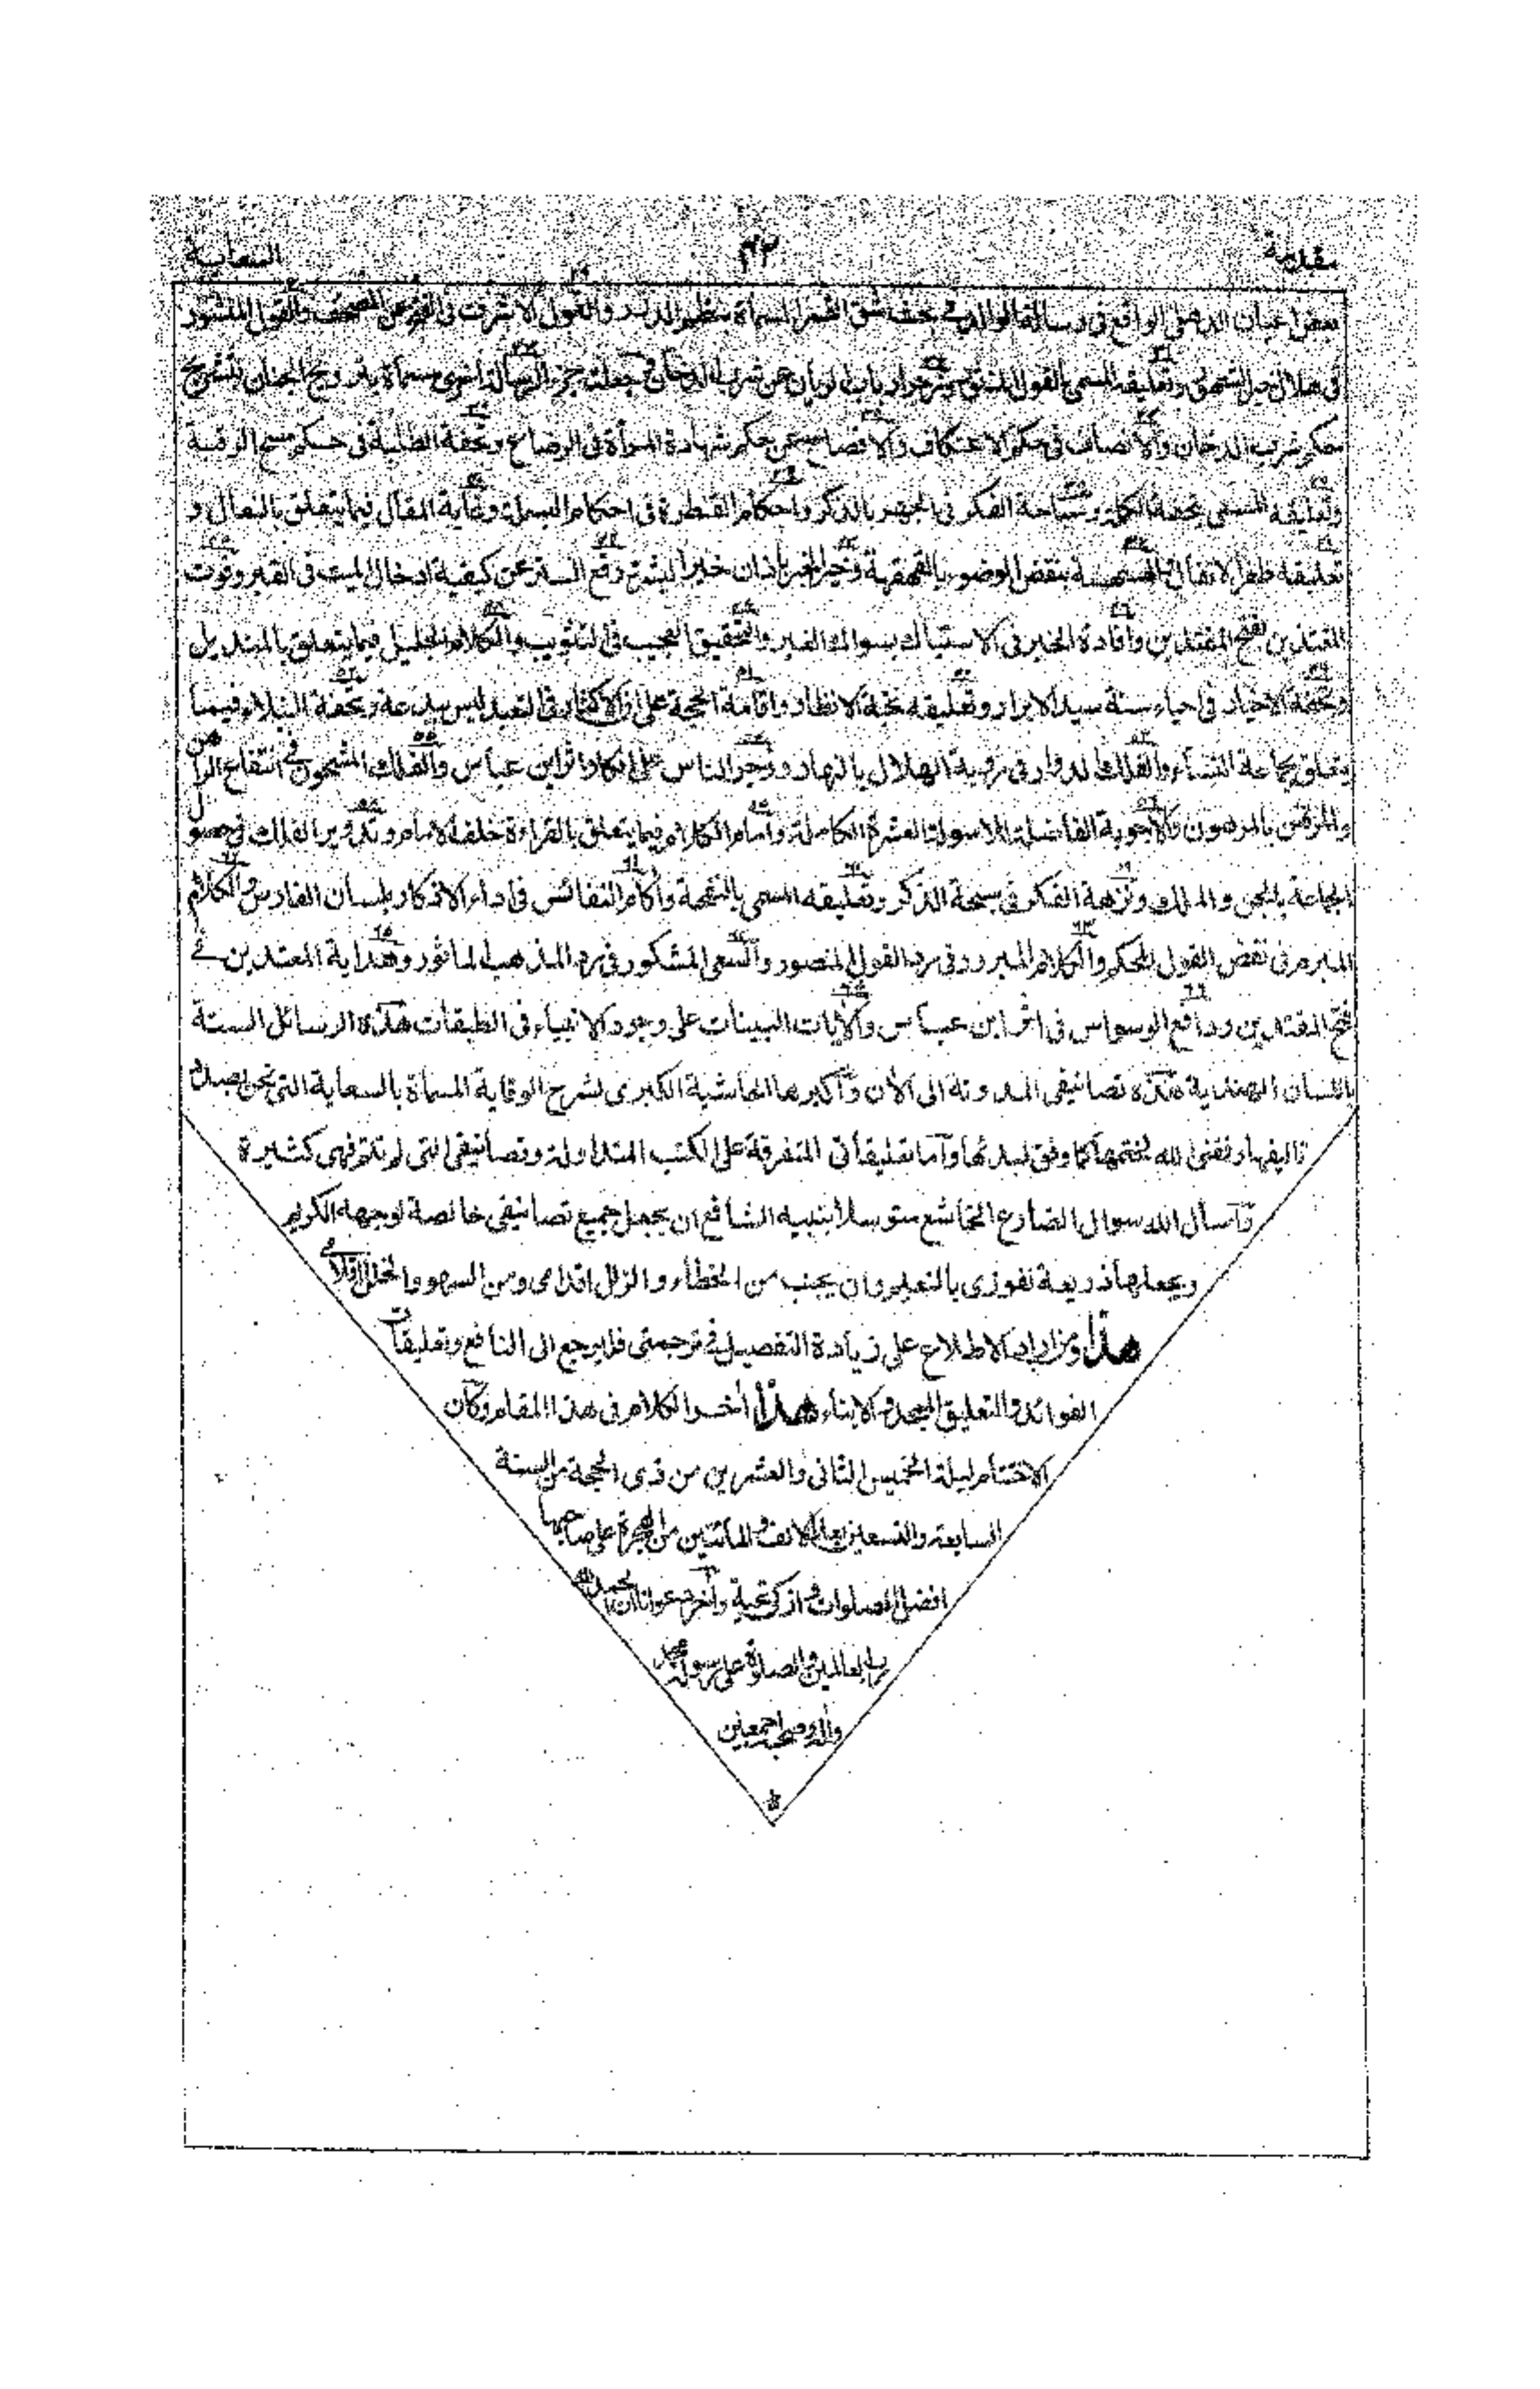 مقدمة ٤٢ السعاية
بعض اعيان الدهلي الواقع في رسالة الوالد في بحث شق القمر المسماة بنظم الدرر والقول الاشرف في الفتح عن المصحف والقول المنشور
في هلال خير الشهور وتعليقه المسمى بالقول المنثور وزجر ارباب الريان عن شرب الدخان وجعلته جزء الرسالة اخرى مسماة بترويح الجنان بتشريح
حكم شرب الدخان والانصاف في حكم الاعتكاف والافصاح عن حكم شهادة المرأة في الرضاع وتحفة الطلبة في حكم مسح الرقبة
وتعليقه المسمى بتحفة الكملة وسباحة الفكر في الجهر بالذكر واحكام القنطرة في احكام البسملة وغاية المقال فيما يتعلق بالنعال و
تعليقه ظفر الانفال والهسهسة بنقض الوضوء بالقهقهة وخير الخبر باذان خير البشر ورفع الستر عن كيفية ادخال الميت في القبر وقوت
المغتذين بفتح المقتدين وافادة الخير في الاستياك بسواك الغير والتحقيق العجيب في التثويب والكلام الجليل فيما يتعلق بالمنديل
وتحفة الاخيار في احياء سنة سيد الابرار وتعليقه نخبة الانظار واقامة الحجة على ان الاكثار في التعبد ليس ببدعة وتحفة النبلاء فيما
يتعلق بجماعة النساء والفلك الدوار في رؤية الهلال بالنهار وزجر الناس على انكار اثر ابن عباس والفلك المشحون في انتفاع الراهن
والمرتهن بالمرهون والاجوبة الفاضلة للاسولة العشرة الكاملة وامام الكلام فيما يتعلق بالقراءة خلف الامام وتدوير الفلك في حصول
الجماعة بالجن والملك ونزهة الفكر في سبحة الذكر وتعليقه المسمى بالنفحة وآكام النفائس في اداء الاذكار بلسان الفارس والكلام
المبرم في نقض القول المحكم والكلام المبرور في رد القول المنصور والسعي المشكور في رد المذهب الماثور وهداية المعتدين في
فتح المقتدين ودافع الوسواس في اثر ابن عباس والآيات البينات على وجود الانبياء في الطبقات هذه الرسائل الستة
باللسان الهندية هذه تصانيفي المدونة الى الآن واكبرها الحاشية الكبرى لشرح الوقاية المسماة بالسعاية التي نحن بصدد
تاليفها وفقني الله لختمها كما وفق لبدئها واما تعليقاتي المتفرقة على الكتب المتداولة وتصانيفي التي لم تتم فهي كثيرة
وآسأل الله سوال الضارع الخاشع متوسلا بنبيه الشافع ان يجعل جميع تصانيفي خالصة لوجهه الكريم
ويجعلها ذريعة لفوزي بالنعيم وان يجنب من الخطأ والزلل اقدامي ومن السهو والخلل اقلامي
هذا ومن اراد الاطلاع على زيادة التفصيل في ترجمتي فليرجع الى النافع وتعليقات
الفوائد والتعليق الممجد والانباء هذا آخر الكلام في هذا المقام وكان
الاختتام ليلة الخميس الثاني والعشرين من ذي الحجة من السنة
السابعة والتسعين بعد الالف والمأتين من الهجرة على صاحبها
افضل الصلوات وازكى تحية وآخر دعوانا ان الحمد لله
رب العالمين والصلوة على رسوله محمد
وآله وصحبه اجمعين